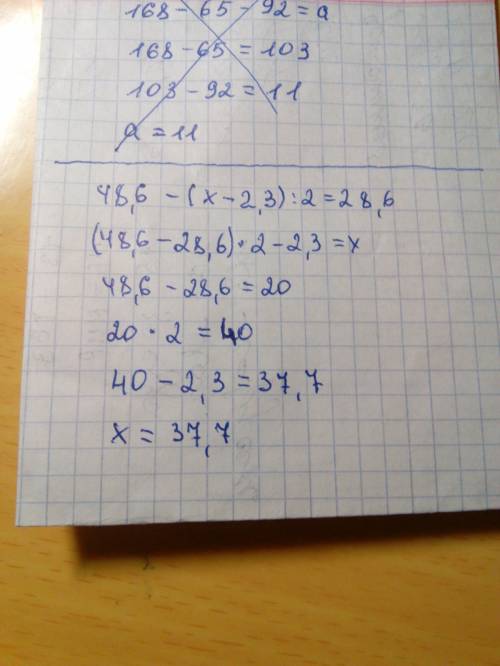 168 - 65 - 92 = a
168 - 65 = 103
103 - 92 = 11
a = 11
48,6 - (x - 2,3) : 2 = 28,6
(48,6 - 28,6) • 2 - 2,3 = x
48,6 - 28,6 = 20
20 • 2 = 40
40 - 2,3 = 37,7
x = 37,7